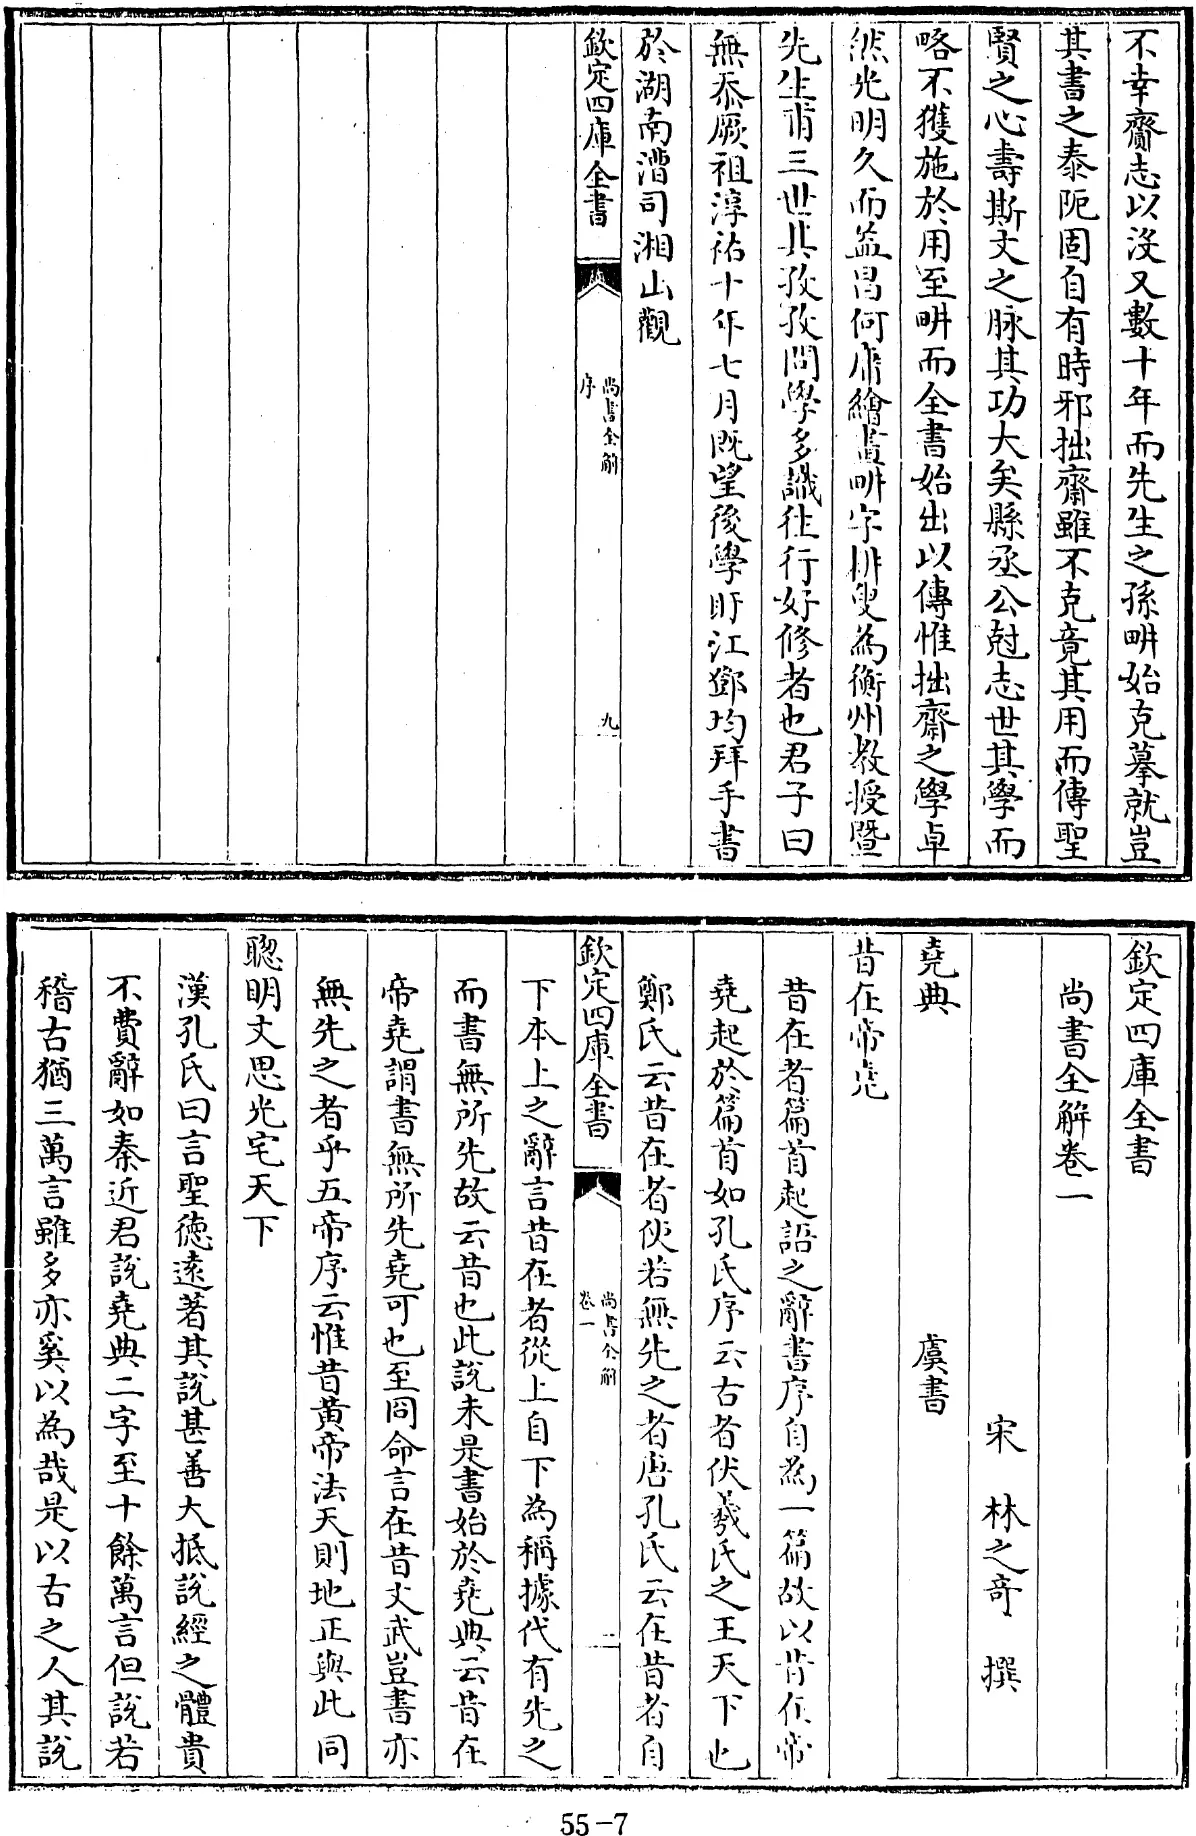 不幸齎志以沒又數十年而先生之孫畊始克摹就豈
其書之泰阨固自有時邪拙齋雖不克竟其用而傳聖
賢之心壽斯文之脉其功大矣縣丞公尅志世其學而
略不獲施於用至畊而全書始出以傳惟拙齋之學卓
然光明久而益昌何庸繪畫畊字耕叟為衡州教授暨
先生甫三世其孜孜問學多識往行好修者也君子曰
無忝厥祖淳祐十年七月旣望後學盱江鄧均拜手書
於湖南漕司湘山觀
欽定四庫全書
尚書全解
序
九
欽定四庫全書
尚書全解卷一
宋 林之奇 撰
堯典 虞書
昔在帝堯
昔在者篇首起語之辭書序自為一篇故以昔在帝
堯起於篇首如孔氏序云古者伏羲氏之王天下也
鄭氏云昔在者使若無先之者唐孔氏云在昔者自
欽定四庫全書
尚書全解
卷一
一
下本上之辭言昔在者從上自下為稱據代有先之
而書無所先故云昔也此說未是書始於堯典云昔在
帝堯謂書無所先堯可也至冏命言在昔文武豈書亦
無先之者乎五帝序云惟昔黃帝法天則地正與此同
聰明文思光宅天下
漢孔氏曰言聖德遠著其說甚善大抵說經之體貴
不費辭如秦近君說堯典二字至十餘萬言但說若
稽古猶三萬言雖多亦奚以為哉是以古之人其說
55-7